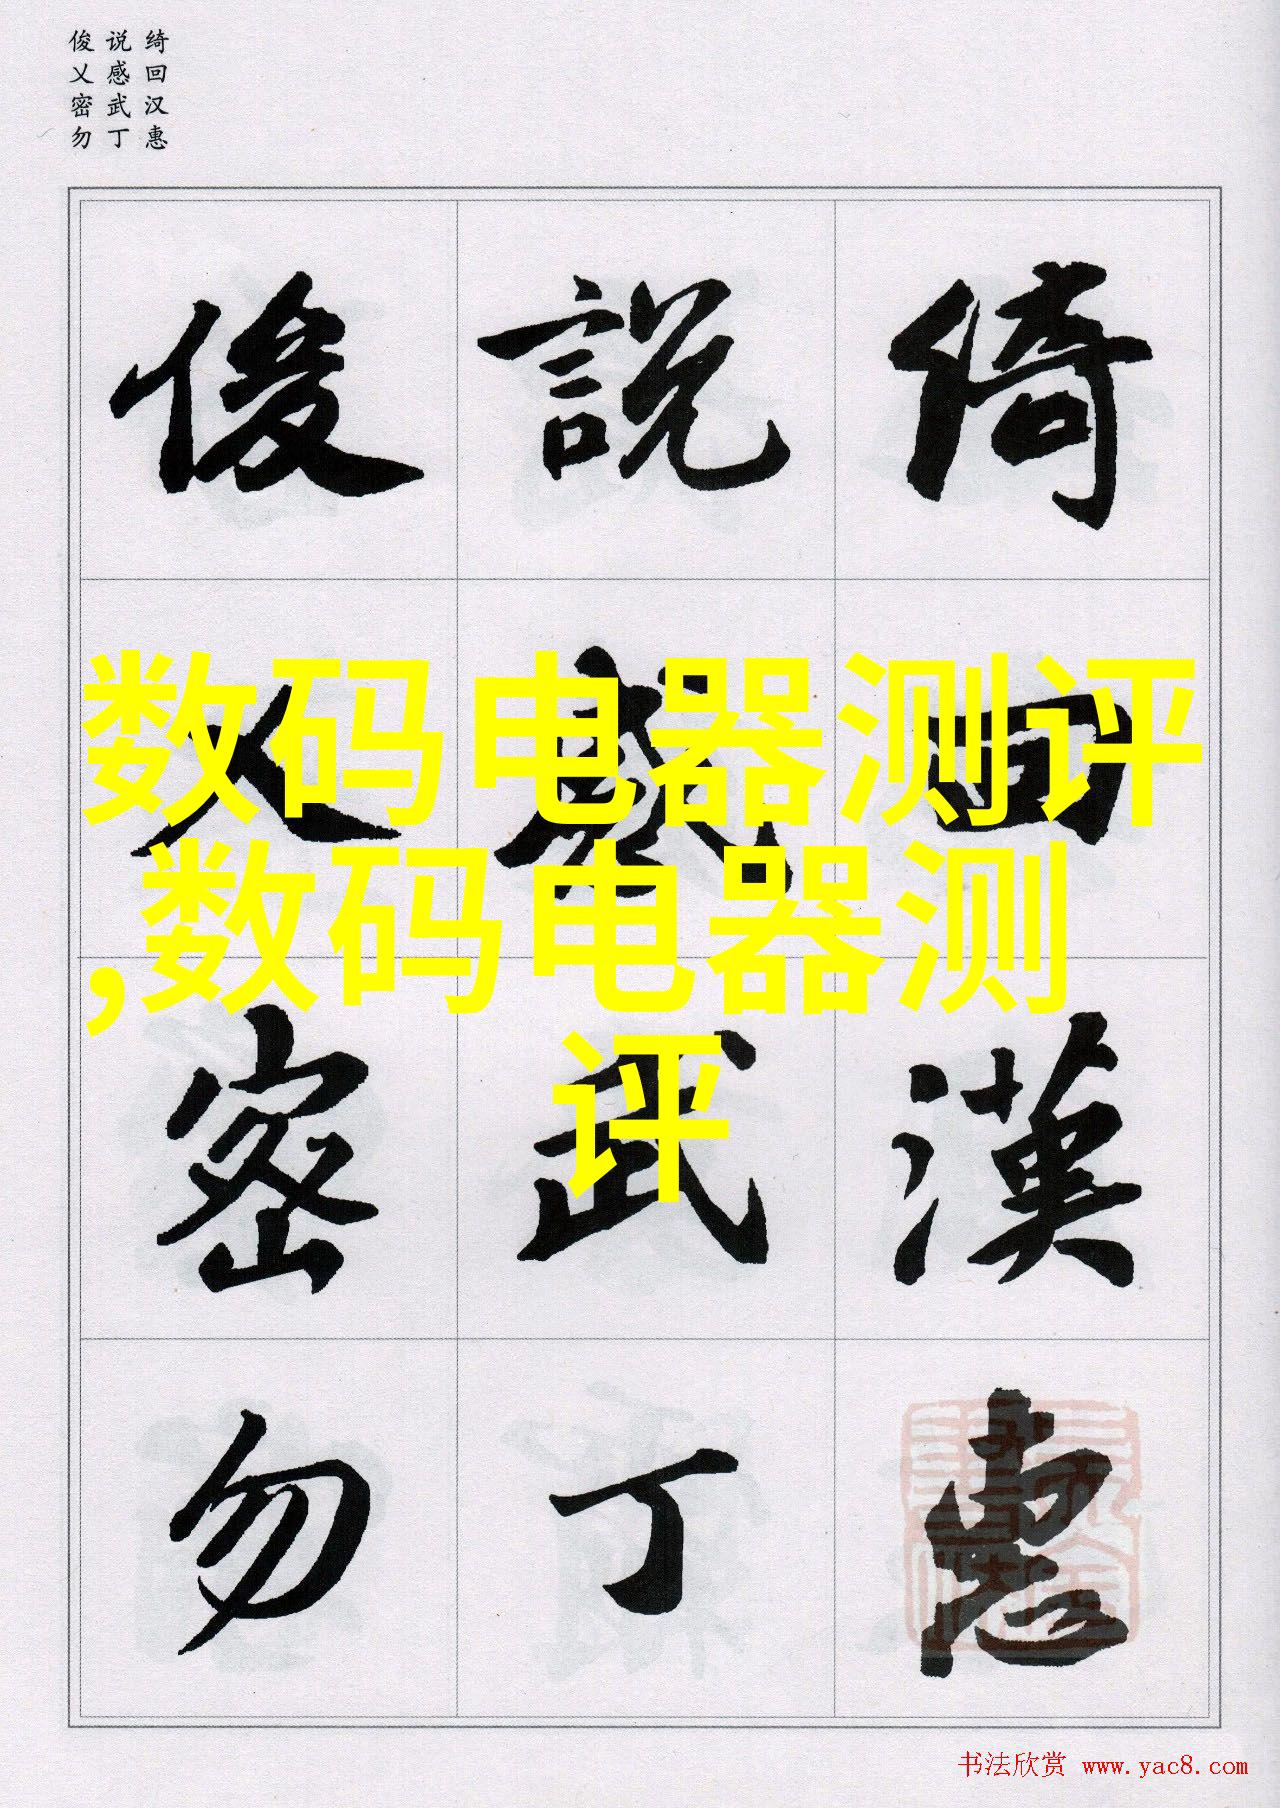 俊说绮
乂感回
密武汉
勿丁惠
俊 說 綺
乂 感 回
密 武 漢
勿 丁 惠
数码电器测评
,数码电器测
评
书法欣赏 www.yac8.com